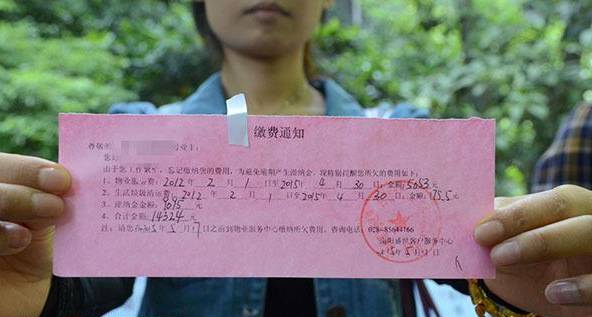 缴费通知
尊敬的 业主:
您好
由于您工作繁忙,忘记缴纳您的费用,为避免逾期产生滞纳金,现特别提醒您所欠的费用如下:
1. 物业服务费: 2012 年 2 月 1 日至 2015 年 4 月 30 日; 金额: 5053 元
2. 生活垃圾清运费: 2012 年 2 月 1 日至 2015 年 4 月 30 日; 金额: 元
3. 滞纳金金额: 元
4. 合计金额: 14324 元
注: 请您在2015 年 5 月 日之前到物业服务中心缴纳所欠费用。咨询电话: 028-85644166
客户服务中心
15年5月 日